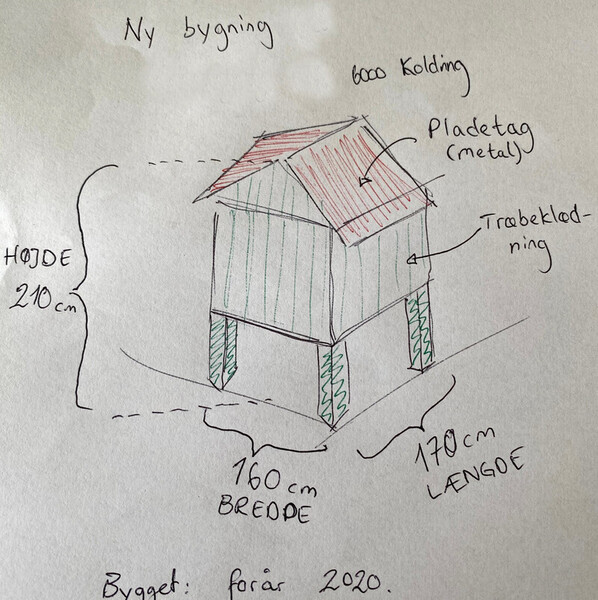 Ny bygning
6000 Kolding
Pladetag
(metal)
Træbeklæd-
ning
HØJDE
210 cm
160 cm
BREDDE
170 cm
LÆNGDE
Bygget: forår 2020.